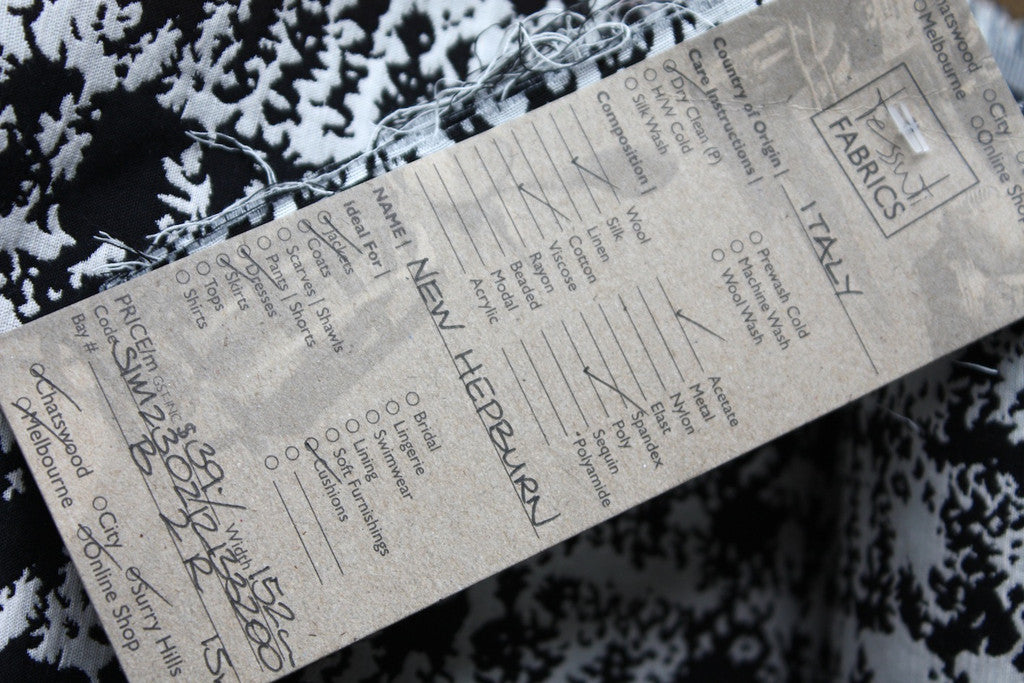 Chatswood
Melbourne
City
Online Shop
Tessuti
FABRICS
Country of Origin | ITALY
Care Instructions |
Dry Clean (P)
H/W Cold
Silk Wash
Prewash Cold
Machine Wash
Wool Wash
Composition |
Wool
Silk
Linen
Cotton
Viscose
Rayon
Beaded
Modal
Acrylic
Acetate
Metal
Nylon
Elast
Spandex
Poly
Sequin
Polyamide
NAME | NEW HEPBURN
Ideal For |
Jackets
Coats
Scarves | Shawls
Pants | Shorts
Dresses
Skirts
Tops
Shirts
Bridal
Lingerie
Swimwear
Lining
Soft Furnishings
Cushions
PRICE/m GST INC $ 39./ Width 152
Code
Bay # B 2 R
Chatswood
Melbourne
City
Online Shop
Surry Hills